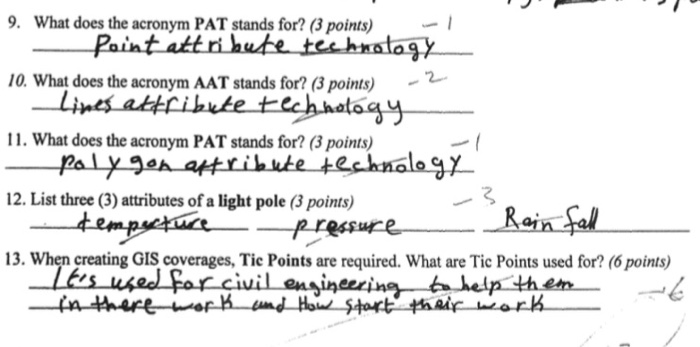 9. What does the acronym PAT stands for? (3 points) -1
Point attribute technology
10. What does the acronym AAT stands for? (3 points) -2
Lines attribute technology
11. What does the acronym PAT stands for? (3 points) -1
Polygon attribute technology
12. List three (3) attributes of a light pole (3 points) -3
temperture pressure Rain fall
13. When creating GIS coverages, Tic Points are required. What are Tic Points used for? (6 points)
It's used for civil engineering to help them -6
in there work and How start their work